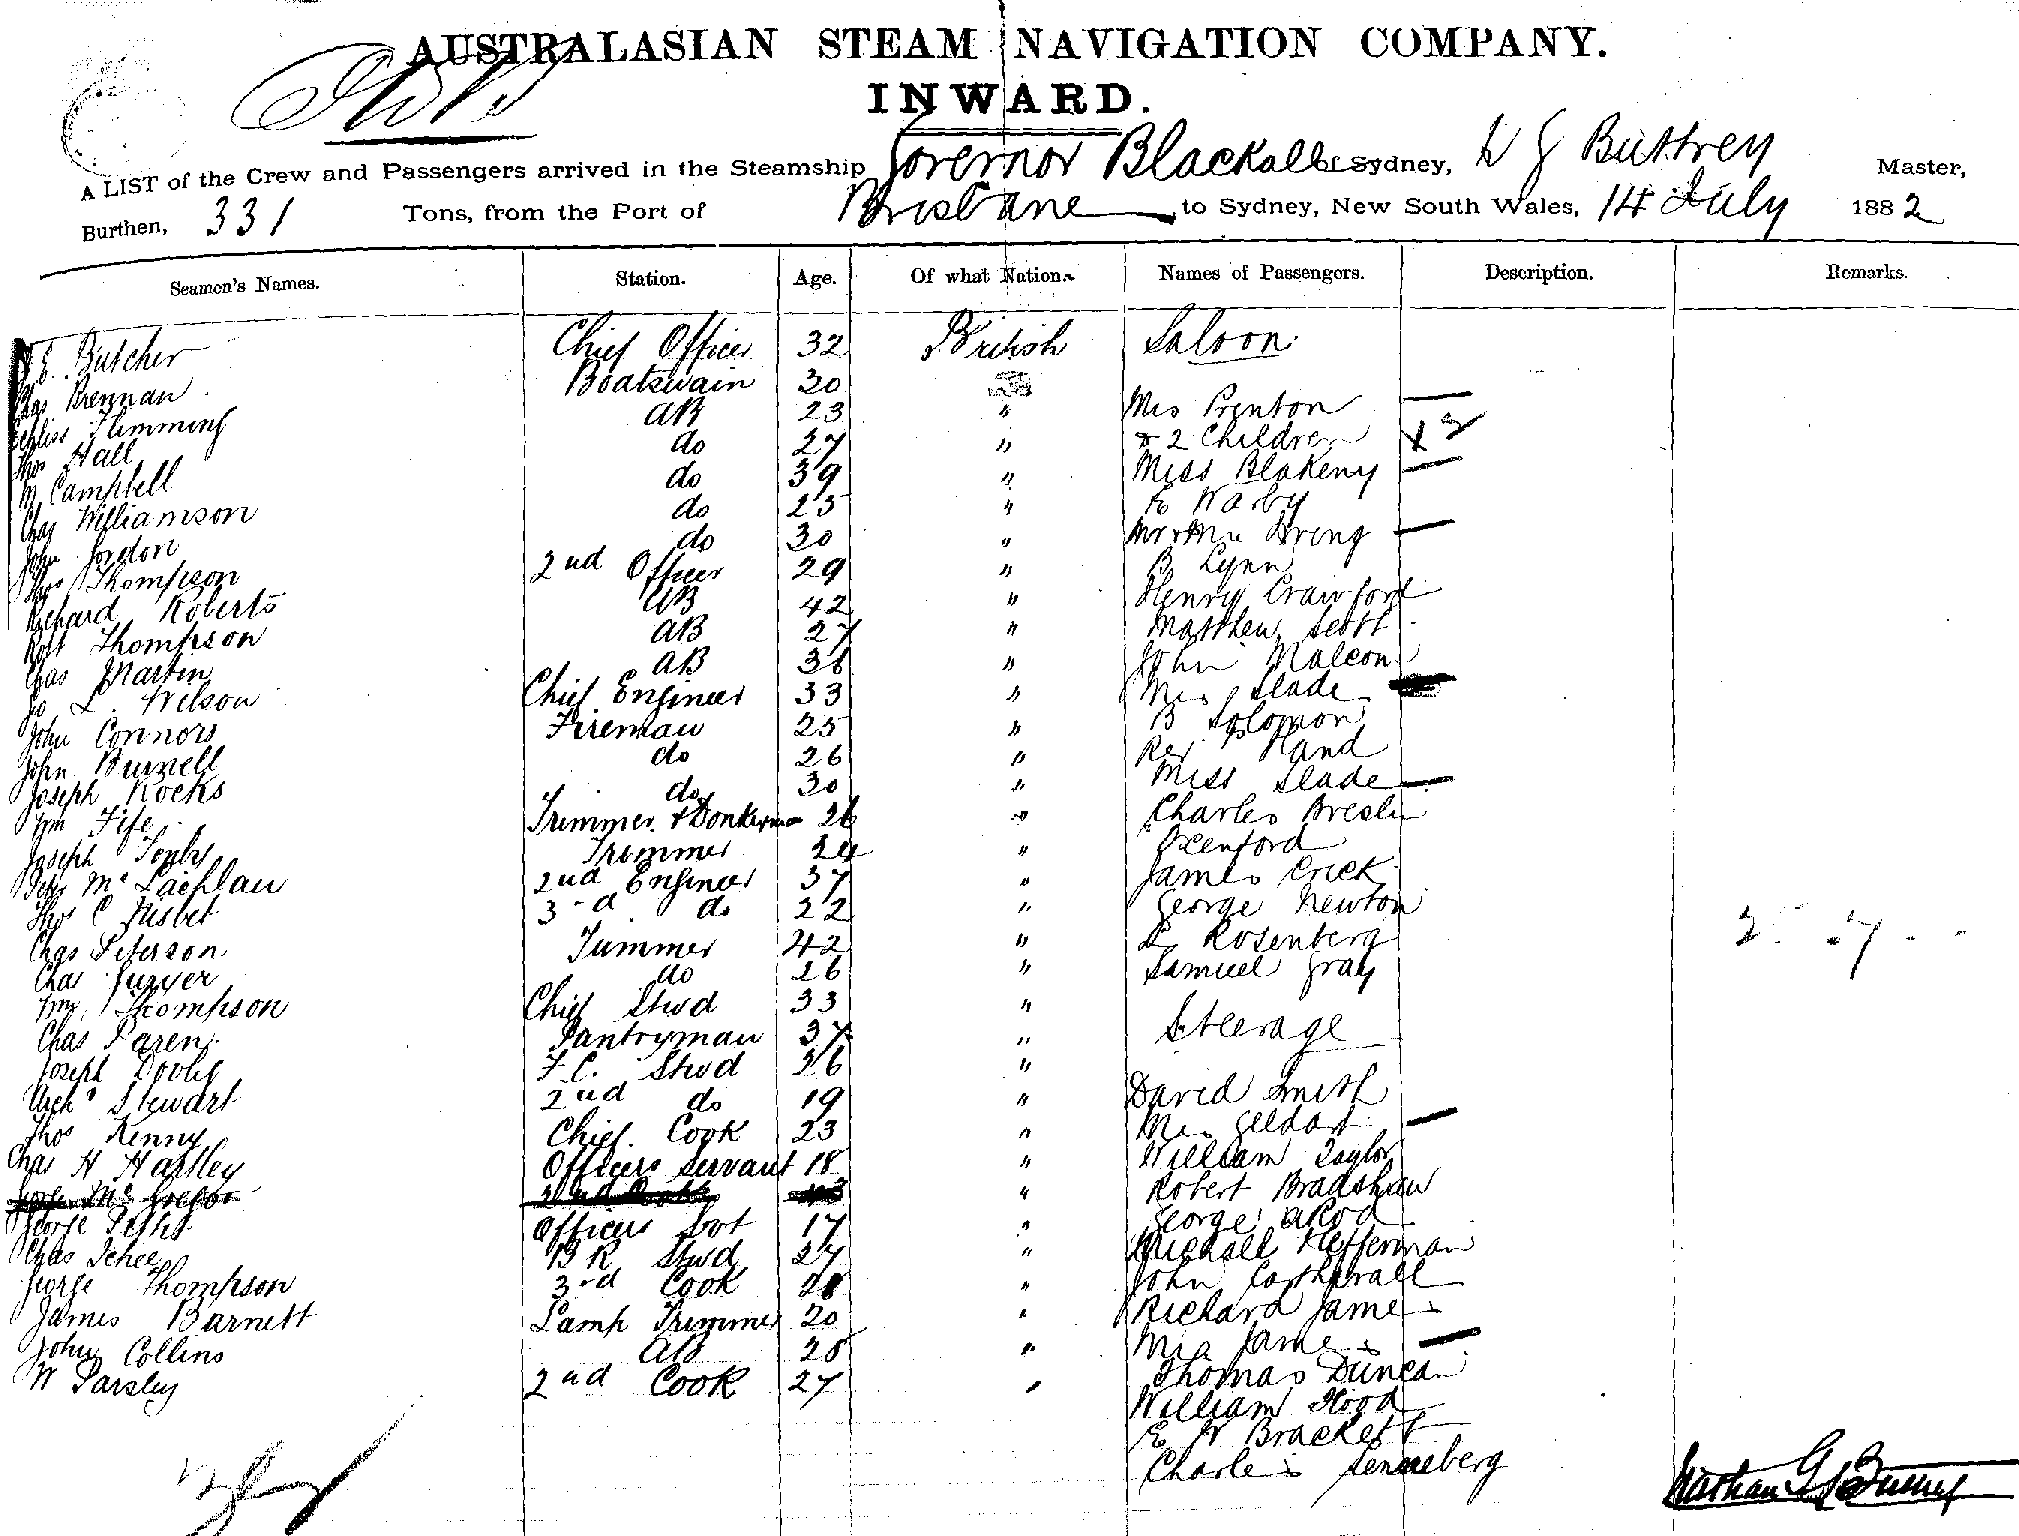 AUSTRALASIAN STEAM NAVIGATION COMPANY.
INWARD.
A LIST of the Crew and Passengers arrived in the Steamship Governor Blackall of Sydney, Buttrey Master,
Burthen, 331 Tons, from the Port of Brisbane to Sydney, New South Wales, 14 July 1882
Seamen's Names. Station. Age. Of what Nation. Names of Passengers. Description. Remarks.
E. Butcher Chief Officer 32 British Saloon
Brennan Boatswain 30
Flimming AB 23 " Mrs Prenton
Thos Hall do 27 " & 2 Children
M Campbell do 39 " Miss Blakeny
Chas Williamson do 25 " E Warby
John Jordon do 30 " Mr & Mrs
Thos Thompson 2nd Officer 29 " Lynn
Richard Roberts AB 42 " Henry Crawford
Robt Thompson AB 27 " Matthew Scott
Chas Martin AB 36 " John
Jo L. Wilson Chief Engineer 33 " Mrs Slade
John Connors Fireman 25 " B Solomon
John Burnell do 26 " Rev Hand
Joseph Rocks do 30 " Miss Slade
Wm Fife Trimmer & Donkeyman 26 " Charles
Joseph Trimmer 24 " Oxenford
Peter McLachlan 2nd Engineer 37 " James Crick
Thos C Nisbet 3rd do 22 " George Newton
Chas Peterson Trimmer 42 " L Rosenberg
Chas do 26 " Samuel Gray
Wm Thompson Chief Stwd 33 "
Chas Pantryman 37 " Steerage
Joseph F.C. Stwd 26 "
Stewart 2nd do 19 " David Smith
Thos Kenny Chief Cook 23 " Mrs Geldart
Chas H Hartley Officers Servant 18 " William Taylor
McGregor 2nd Cook " Robert Bradshaw
George Light Officers Svt 17 " George
Chas BR Stwd 27 " Michael Heffernan
George Thompson 3rd Cook 28 " John
James Barnett Lamp Trimmer 20 " Richard James
John Collins AB 28 " Mrs James
W Parsley 2nd Cook 27 " Thomas Duncan
William Hood
E W Brackett
Charles